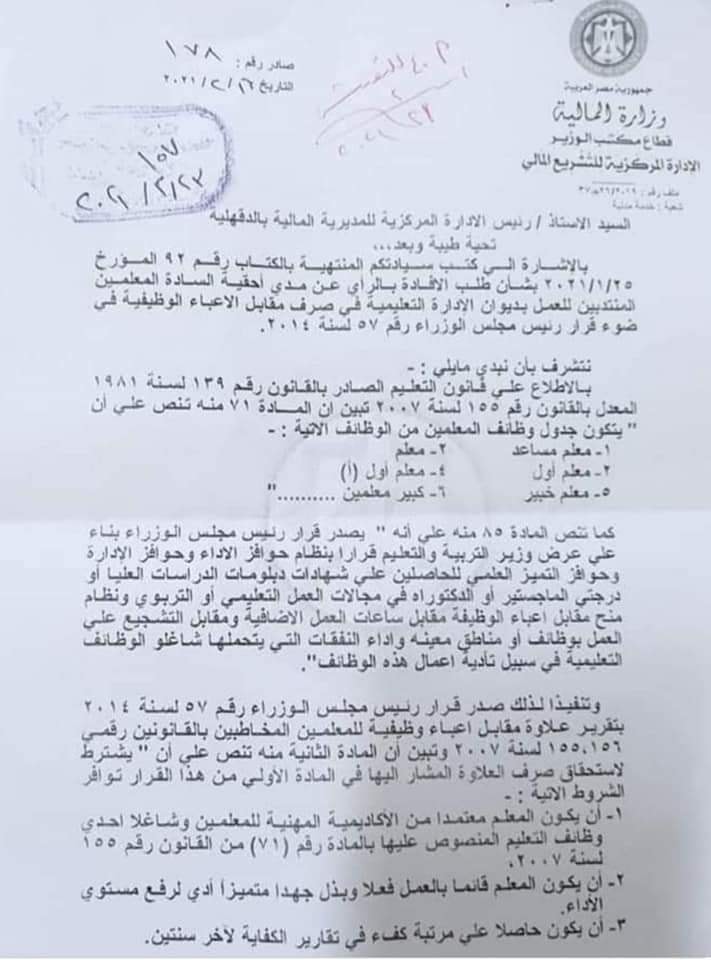 جمهورية مصر العربية
وزارة المالية
قطاع مكتب الوزير
الإدارة المركزية للتشريع المالي
ملف رقم : ٣٧/٢٦/٢٠١٩
شعبة : خدمة مدنية
صادر رقم : ١٧٨
التاريخ ١٦/٢/٢٠٢١
١٥٧
٢٠٢١/٢/٢٣
السيد الاستاذ / رئيس الادارة المركزية للمديرية المالية بالدقهليه
تحية طيبة وبعد،،،
بالإشارة الي كتب سيادتكم المنتهية بالكتاب رقم ٩٢ المؤرخ
٢٠٢١/١/٢٥ بشأن طلب الافادة بالرأي عن مدي أحقية السادة المعلمين
المنتدبين للعمل بديوان الإدارة التعليمية في صرف مقابل الاعباء الوظيفية في
ضوء قرار رئيس مجلس الوزراء رقم ٥٧ لسنة ٢٠١٤.
نتشرف بأن نبدي مايلي : -
بالاطلاع علي قانون التعليم الصادر بالقانون رقم ١٣٩ لسنة ١٩٨١
المعدل بالقانون رقم ١٥٥ لسنة ٢٠٠٧ تبين ان المادة ٧١ منه تنص علي أن
" يتكون جدول وظائف المعلمين من الوظائف الاتية : -
١- معلم مساعد ٢- معلم
٢- معلم أول ٤- معلم أول (أ)
٥- معلم خبير ٦- كبير معلمين .........."
كما تنص المادة ٨٥ منه علي أنه " يصدر قرار رئيس مجلس الوزراء بناء
علي عرض وزير التربية والتعليم قرارا بنظام حوافز الاداء وحوافز الإدارة
وحوافز التميز العلمي للحاصلين علي شهادات دبلومات الدراسات العليا أو
درجتي الماجستير أو الدكتوراه في مجالات العمل التعليمي أو التربوي ونظام
منح مقابل اعباء الوظيفة مقابل ساعات العمل الاضافية ومقابل التشجيع علي
العمل بوظائف أو مناطق معينه واداء النفقات التي يتحملها شاغلو الوظائف
التعليمية في سبيل تأدية اعمال هذه الوظائف".
وتنفيذا لذلك صدر قرار رئيس مجلس الوزراء رقم ٥٧ لسنة ٢٠١٤
بتقرير علاوة مقابل اعباء وظيفية للمعلمين المخاطبين بالقانونين رقمي
١٥٥،١٥٦ لسنة ٢٠٠٧ وتبين أن المادة الثانية منه تنص علي أن " يشترط
لاستحقاق صرف العلاوة المشار اليها في المادة الأولي من هذا القرار توافر
الشروط الاتية : -
١- أن يكون المعلم معتمدا من الأكاديمية المهنية للمعلمين وشاغلا احدي
وظائف التعليم المنصوص عليها بالمادة رقم (٧١) من القانون رقم ١٥٥
لسنة ٢٠٠٧.
٢- أن يكون المعلم قائما بالعمل فعلا وبذل جهدا متميزاً أدي لرفع مستوي
الأداء.
٣- أن يكون حاصلا علي مرتبة كفء في تقارير الكفاية لآخر سنتين.